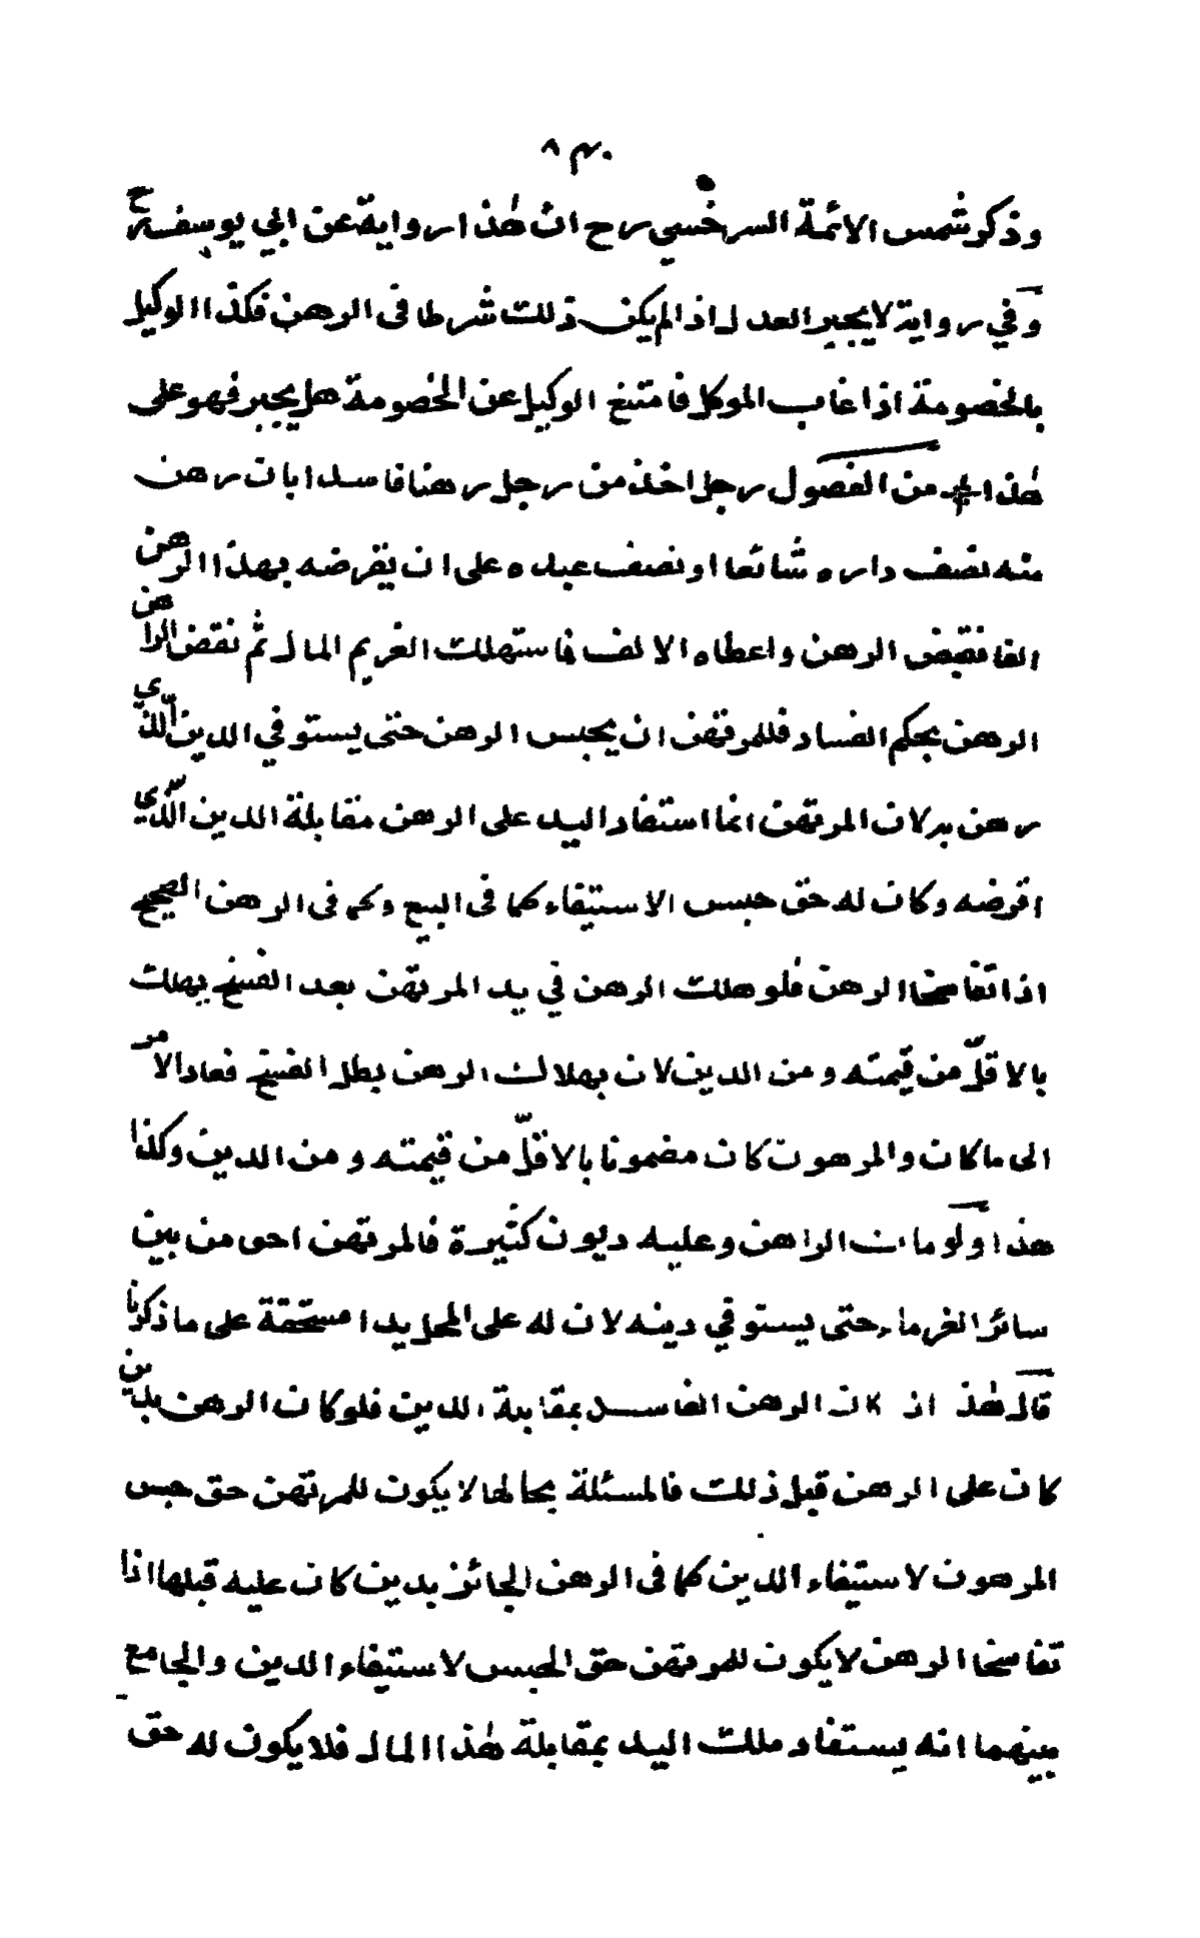 وذكر شمس الائمة السرخسي رح ان هٰذا رواية عن ابي يوسف رح
وفي رواية لا يجبر العدل اذا لم يكن ذلك شرطا فى الرهن فكذا الوكيل
بالخصومة اذا غاب الموكل فامتنع الوكيل عن الخصومة هل يجبر فهو على
هٰذا من الفصول رجل اخذ من رجل رهنا فاسدا بان رهن
منه نصف داره شائعا او نصف عبده على ان يقرضه بهذا الرهن
الفا فقبض الرهن واعطاه الالف فاستهلك الغريم المال ثم نقض الراهن
الرهن بحكم الفساد فللمرتهن ان يحبس الرهن حتى يستوفي الدين الّذي
رهن به لان المرتهن انما استفاد اليد على الرهن مقابلة الدين الّذي
اقرضه وكان له حق حبس الاستيفاء كما فى البيع وكما فى الرهن الصحيح
اذا تفاسخا الرهن فلو هلك الرهن في يد المرتهن بعد الفسخ يهلك
بالاقلّ من قيمته ومن الدين لان بهلاك الرهن بطل الفسخ فعاد الامر
الى ما كان والمرهون كان مضمونا بالاقلّ من قيمته ومن الدين وكذا
هذا ولو مات الراهن وعليه ديون كثيرة فالمرتهن احق من بين
سائر الغرماء حتى يستوفي دينه لان له على المحل يدا مستحقة على ما ذكرنا
قال هٰذا اذا كان الرهن الفاسد بمقابلة الدين فلو كان الرهن بدين
كان على الرهن قبل ذلك فالمسئلة بحالها لا يكون للمرتهن حق حبس
المرهون لاستيفاء الدين كما فى الرهن الجائز بدين كان عليه قبلها اذا
تفاسخا الرهن لا يكون للمرتهن حق الحبس لاستيفاء الدين والجامع
بينهما انه يستفاد ملك اليد بمقابلة هٰذا المال فلا يكون له حق